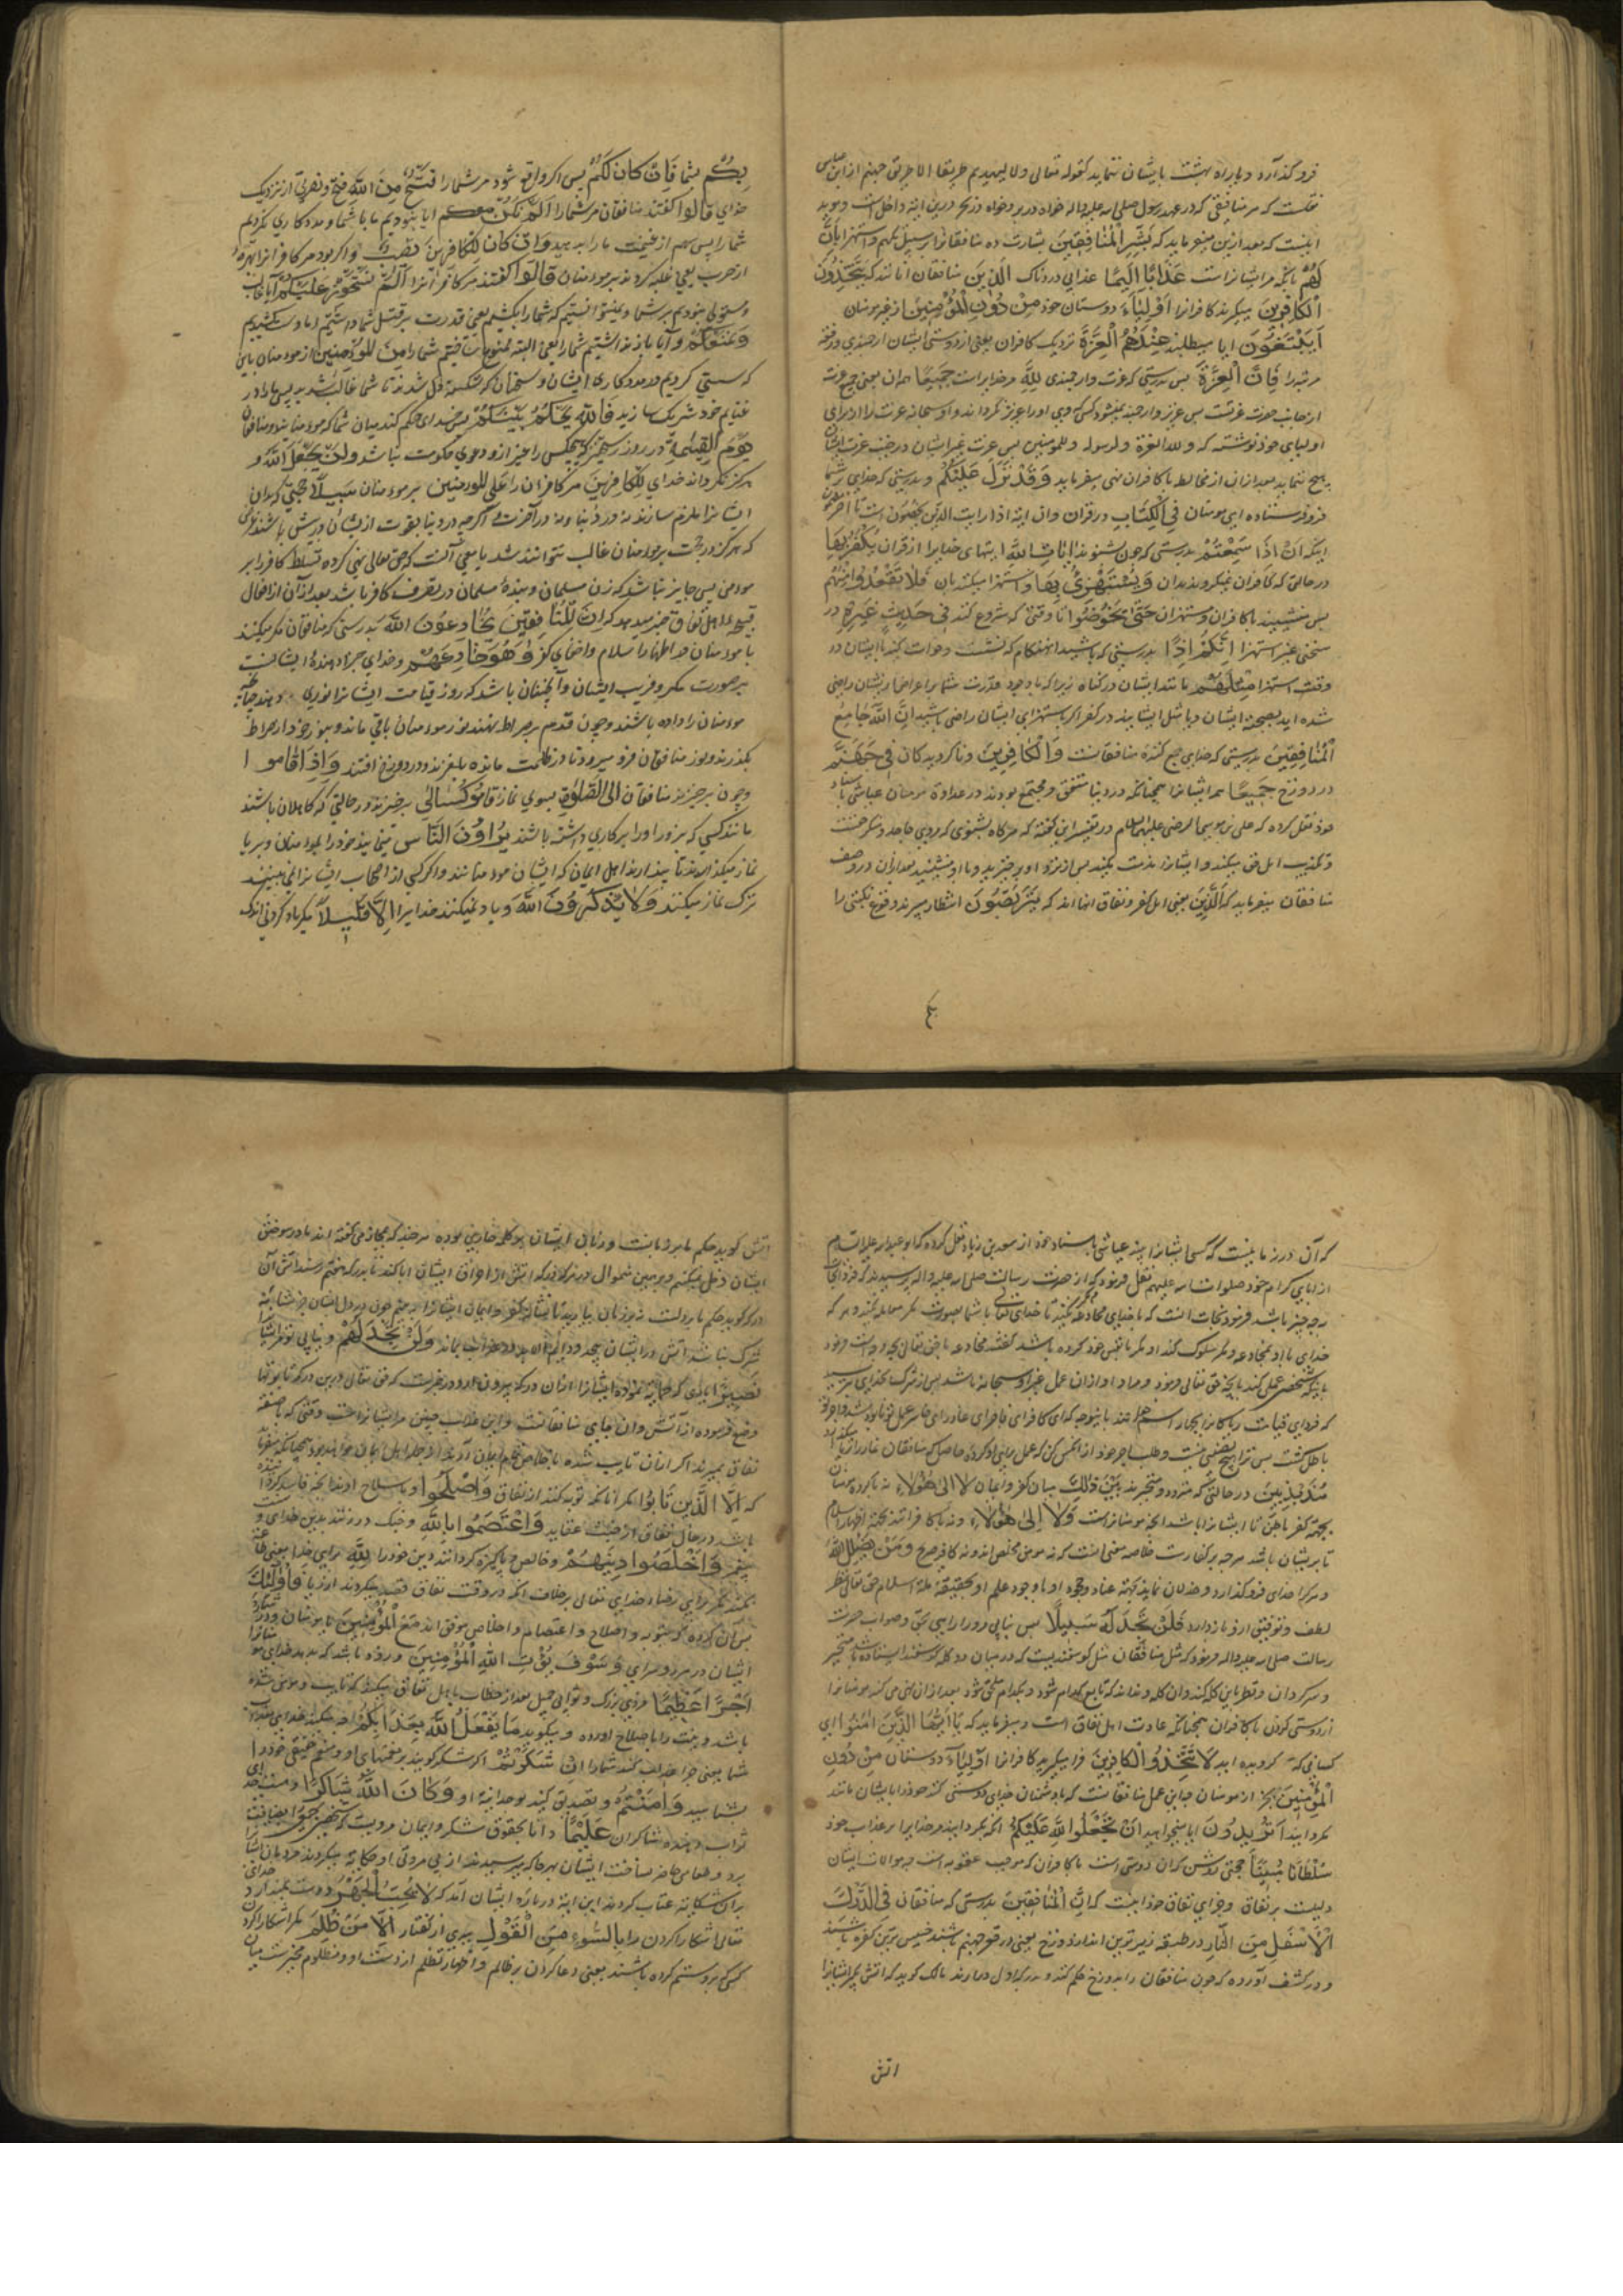 فرو گذارد و براه بهشت بایشان ننماید کقوله تعالی ولا لیهدیهم طریقا الا طریق جهنم از ابن عباس
نقلست که هر منافقی که در عهد رسول صلی الله علیه واله خواه در بر و خواه در بحر درین ایه داخل است و موید
اینست که بعد ازین میفرماید که بَشِّرِ الْمُنَافِقِينَ بشارت ده منافقانرا بر سبیل تهکم و استهزا بِأَنَّ
لَهُمْ بانکه مر ایشانراست عَذَابًا أَلِيمًا عذابی دردناک الَّذِينَ منافقان انانند که يَتَّخِذُونَ
الْكَافِرِينَ میگیرند کافرانرا أَوْلِيَاءَ دوستان خود مِنْ دُونِ الْمُؤْمِنِينَ از غیر مومنان
أَيَبْتَغُونَ ایا میطلبند عِنْدَهُمُ الْعِزَّةَ نزدیک کافران یعنی از دوستی ایشان ارجمندی و رفعت
مرتبه را فَإِنَّ الْعِزَّةَ پس بدرستی که عزت و ارجمندی لِلَّهِ مر خدایراست جَمِيعًا همه ان یعنی جمیع عزت
از جانب حضرت عزتست پس عزیز و ارجمند نمیشود کسی که وی اورا عزیز نگرداند و او سبحانه عزت را از برای
اولیای خود نوشته که ولله العزة ولرسوله وللمومنین پس عزت غیر ایشان در جنب عزت ایشان
هیچ ننماید بعد ازان از مخالطه با کافران نهی میفرماید وَقَدْ نَزَّلَ عَلَيْكُمْ و بدرستی که خدای بر شما
فرو فرستاده ای مومنان فِي الْكِتَابِ در قران وان ایه اذا رایت الذین یخوضون است تا اخر
اینکه أَنْ إِذَا سَمِعْتُمْ بدرستی که چون شنوید آيَاتِ اللَّهِ ایتهای خدایرا از قران يُكْفَرُ بِهَا
در حالتی که کافران نمیگروند بدان وَيُسْتَهْزَأُ بِهَا و استهزا میکنند بان فَلَا تَقْعُدُوا مَعَهُمْ
پس منشینید با کافران و مستهزان حَتَّى يَخُوضُوا تا وقتی که شروع کنند فِي حَدِيثٍ غَيْرِهِ در
سخنی غیر استهزا إِنَّكُمْ إِذًا بدرستی که باشید انهنگام که نشست و خاست کنید با ایشان در
وقت استهزا مِثْلُهُمْ مانند ایشان در گناه زیرا که با وجود قدرت شما بر اعراض از ایشان راضی
شده اید بصحبت ایشان و یا مثل ایشانید در کفر اگر باستهزای ایشان راضی باشید إِنَّ اللَّهَ جَامِعُ
الْمُنَافِقِينَ بدرستی که خدای جمع کننده منافقانست وَالْكَافِرِينَ و ناگرویدگان فِي جَهَنَّمَ
در دوزخ جَمِيعًا همه ایشانرا همچنانکه در دنیا متفق و مجتمع بودند در عداوة مومنان عیاشی باسناد
خود نقل کرده که علی بن موسی الرضی علیهما السلام در تفسیر این گفته که هرگاه بشنوی که مردی جاحد و منکر حقست
و تکذیب اهل حق میکند و ایشانرا مذمت میکند پس از نزد او برخیزید و با او منشینید بعد ازان در وصف
منافقان میفرماید که الَّذِينَ یعنی اهل کفر و نفاق انانند که يَتَرَبَّصُونَ انتظار میبرند وقوع نکبتی را
بکم
بِكُمْ بشما فَإِنْ كَانَ لَكُمْ پس اگر واقع شود مر شمارا فَتْحٌ مِنَ اللَّهِ فتح و نصرتی از نزدیک
خدای قَالُوا گفتند منافقان مر شمارا أَلَمْ نَكُنْ مَعَكُمْ ایا نبودیم ما با شما و مددکاری نکردیم
شمارا پس سهم از غنیمت مارا بدهید وَإِنْ كَانَ لِلْكَافِرِينَ نَصِيبٌ و اگر بود مر کافرانرا بهره
از حرب یعنی غلبه کردند بر مومنان قَالُوا گفتند مر کافرانرا أَلَمْ نَسْتَحْوِذْ عَلَيْكُمْ آیا غالب
و مستولی نبودیم بر شما و میتوانستیم که شمارا بکشیم یعنی قدرت بر قتل شما داشتیم اما دست کشیدیم
وَنَمْنَعْكُمْ و آیا باز نداشتیم شمارا یعنی البته ممنوع ساختیم شمارا مِنَ الْمُؤْمِنِينَ از مومنان باین
که سستی کردیم در مددکاری ایشان و سخنان که شکسته دل شدند تا شما غالب شدید پس مارا در
غنایم خود شریک سازید فَاللَّهُ يَحْكُمُ بَيْنَكُمْ پس خدای حکم کند میان شما که مومنانید و منافقان
يَوْمَ الْقِيَامَةِ در روز رستخیز که هیچکس را غیر از و دعوی حکومت نباشد وَلَنْ يَجْعَلَ اللَّهُ و
هرگز نگرداند خدای لِلْكَافِرِينَ مر کافران را عَلَى الْمُؤْمِنِينَ بر مومنان سَبِيلًا حجتی که بدان
ایشانرا ملزم سازند نه در دنیا و نه در آخرت و اگرچه در دنیا بقوت از ایشان در پیش باشند
که هرگز در حجت بر مومنان غالب نتوانند شد یا معنی آنست که حق تعالی نهی کرده تسلط کافر را بر
مومن پس جایز نباشد که زن مسلمان و بنده مسلمان در تصرف کافر باشد بعد ازان از افعال
قبیحه اهل نفاق خبر میدهد که إِنَّ الْمُنَافِقِينَ يُخَادِعُونَ اللَّهَ بدرستی که منافقان مکر میکنند
با مومنان در اظهار اسلام و اخفای کفر وَهُوَ خَادِعُهُمْ و خدای جزا دهنده ایشانست
بر صورت مکر و فریب ایشان و آنچنان باشد که روز قیامت ایشانرا نوری دهد چنانچه
مومنان را داده باشند و چون قدم بر صراط نهند نور مومنان باقی ماند و بنور خود از صراط
بگذرند و نور منافقان فرو میرود تا در ظلمت مانده بلغزند و در دوزخ افتند وَإِذَا قَامُوا
و چون برخیزند منافقان إِلَى الصَّلَاةِ بسوی نماز قَامُوا كُسَالَى برخیزند در حالتی که کاهلان باشند
مانند کسی که بزور اورا بر کاری داشته باشند يُرَاءُونَ النَّاسَ مینمایند خودرا بمومنان و بریا
نماز میگذارند تا پندارند اهل ایمان که ایشان مومنانند و اگر کسی از اصحاب ایشانرا نمی بیند
ترک نماز میکنند وَلَا يَذْكُرُونَ اللَّهَ و یاد نمیکنند خدایرا إِلَّا قَلِيلًا مگر یاد کردنی اندک
که آن در زمانیست که کسی ایشانرا بیند عیاشی باسناد خود از مسعدة بن زیاد نقل کرده که ابو عبدالله علیه السلام
از ابای کرام خود صلوات الله علیهم نقل فرمود که از حضرت رسالت صلی الله علیه واله پرسیدند که فردا نجات
در چه چیز باشد فرمود نجات انست که با خدای مخادعه نکنید تا خدای تعالی با شما بصورت مکر معامله نکند و هر که
خدای با او بمخادعه و مکر سلوک کند او مکر با نفس خود کرده باشد گفتند مخادعه با حق تعالی چگونه است فرمود
باینکه شخص عملی کند بانچه حق تعالی فرمود و مراد او ازان عمل غیر او سبحانه باشد پس از شرک بخدای بترسید
که فردای قیامت ریاکار را بچهار اسم خوانند باینوجه که ای کافر ای فاجر ای غادر ای خاسر عمل تو نابود شد و اجر تو
باطل گشت پس ترا هیچ نصیبی نیست و طلب اجر خود از انکس کن که عمل برای او کردی حاصل که منافقان نماز را بریا
مُذَبْذَبِينَ در حالتی که متردد و متحیرند بَيْنَ ذَلِكَ میان کفر و ایمان لَا إِلَى هَؤُلَاءِ نه با گروه مومنان
بجهت کفر باطن تا ایشانرا باشد انچه مومنانراست وَلَا إِلَى هَؤُلَاءِ و نه با کافرانند بجهت اظهار اسلام
تا بریشان باشد هر چه بر کفارست خلاصه معنی انست که نه مومن مخلص اند و نه کافر صریح وَمَنْ يُضْلِلِ اللَّهُ
و هر کرا خدای فرو گذارد و خذلان نماید بجهت عناد و جحود او با وجود علم او بحقیقت ملة اسلام حق تعالی نظر
لطف و توفیق ازو باز دارد فَلَنْ تَجِدَ لَهُ سَبِيلًا پس نیابی مر اورا راهی بحق و صواب حضرت
رسالت صلی الله علیه واله فرمود که مثل منافقان مثل گوسفندیست که در میان دو گله گوسفند ایستاده باشد متحیر
و سرگردان و نظر باین گله کند و ان گله و نداند که تابع کدام شود و بکدام ملحق شود بعد ازان نهی می کند مومنانرا
از دوستی کردن با کافران همچنانکه عادت اهل نفاق است و میفرماید که يَا أَيُّهَا الَّذِينَ آمَنُوا ای
کسانی که گرویده اید لَا تَتَّخِذُوا الْكَافِرِينَ فرا مگیرید کافرانرا أَوْلِيَاءَ دوستان مِنْ دُونِ
الْمُؤْمِنِينَ بجز از مومنان چه این عمل منافقانست که با دشمنان خدای دوستی کنند خودرا بایشان مانند
نگردانید أَتُرِيدُونَ ایا میخواهید أَنْ تَجْعَلُوا لِلَّهِ عَلَيْكُمْ انکه بگردانید مر خدایرا بر عذاب خود
سُلْطَانًا مُبِينًا حجتی روشن که ان دوستی است با کافران که موجب عقوبه است چه موالات ایشان
دلیست بر نفاق و جزای نفاق خود اینست که إِنَّ الْمُنَافِقِينَ بدرستی که منافقان فِي الدَّرْكِ
الْأَسْفَلِ مِنَ النَّارِ در طبقه زیرترین اند از دوزخ یعنی در قعر جهنم باشند خسیس ترین کفره باشند
و در کشف آورده که چون منافقان را بدوزخ حکم کنند و بدرکه اول درارند مالک گوید که اتش بگیر ایشانرا
اتش
اتش گوید حکم ما بر زبانست و زبان ایشان بر کلمه جاری بوده هر چند که مجاز می گفته اند مارا در سوختن
ایشان دخل نیست و برهمین منوال در هر درکه که اتش از احراق ایشان ابا کند تا بدرکه هفتم رسند اتش آن
درکه گوید حکم ما بر دلست نه بر زبان بیارید تا نشان کفر و ایمان ایشانرا به بینم چون در دل ایشان جز نشانه
شرک نباشد اتش در ایشان پیچد و دایم الابد در عذاب بماند وَلَنْ تَجِدَ لَهُمْ و نیابی تو مر ایشانرا
نَصِيرًا یاری که حمایت نموده ایشانرا ازان درکه بیرون ارد در خبرست که حق تعالی درین درکه تابوتها
وضع فرموده از آتش وان جای منافقانست و این عذاب حیفی مر ایشانراست وقتی که با صفت
نفاق بمیرند اما اگر ازان تایب شده باخلاص تمام ایمان آرند از جمله اهل ایمان خواهند بود همچنانکه میفرماید
که إِلَّا الَّذِينَ تَابُوا مگر انانکه توبه کنند از نفاق وَأَصْلَحُوا و بصلاح آرند انچه فاسد کرده
باشند در حال نفاق از خبث عقاید وَاعْتَصَمُوا بِاللَّهِ و چنک در زنند بدین خدای و
پیغمبر وَأَخْلَصُوا دِينَهُمْ و خالص و پاکیزه گردانند دین خودرا لِلَّهِ برای خدا یعنی طاعت
نکنند مگر برای رضاء خدای تعالی برخلاف انکه در وقت نفاق قصد میکردند از ریا فَأُولَئِكَ
پس آن گروه که بتوبه و اصلاح و اعتصام و اخلاص موفق اند مَعَ الْمُؤْمِنِينَ با مومنان و در شمار
ایشان در هر دو سرای وَسَوْفَ يُؤْتِ اللَّهُ الْمُؤْمِنِينَ و زود باشد که بدهد خدای مومنانرا
أَجْرًا عَظِيمًا مزدی بزرگ و ثوابی جمیل بعد از خطاب باهل نفاق میکند که تایب و مومن شده
باشند و نیت را با صلاح اورده و میگوید مَا يَفْعَلُ اللَّهُ بِعَذَابِكُمْ چه میکند خدای بعذاب
شما یعنی چرا عذاب کند شمارا إِنْ شَكَرْتُمْ اگر شکر گویید بر نعمتهای او و منعم حقیقی خودرا
بشناسید وَآمَنْتُمْ و تصدیق کنید بوحدانیة او وَكَانَ اللَّهُ شَاكِرًا و هست خدای
ثواب دهنده شاکران عَلِيمًا دانا بحقوق شکر و ایمان مرویست که شخصی بضیافت
برد و طعامی حاضر نساخت ایشان بهر جا که پرسیدند از بی مروتی او حکایه میکردند مردمان ایشانرا
بران شکایة عتاب کردند این ایة درباره ایشان آمد که لَا يُحِبُّ اللَّهُ الْجَهْرَ دوست ندارد خدای
تعالی اشکارا کردن را بِالسُّوءِ مِنَ الْقَوْلِ ببدی از گفتار إِلَّا مَنْ ظُلِمَ مگر اشکارا کردن
کسی که برو ستم کرده باشند یعنی دعا کردن بر ظالم و اظهار تظلم از دست او و مظلوم مخیرست میان